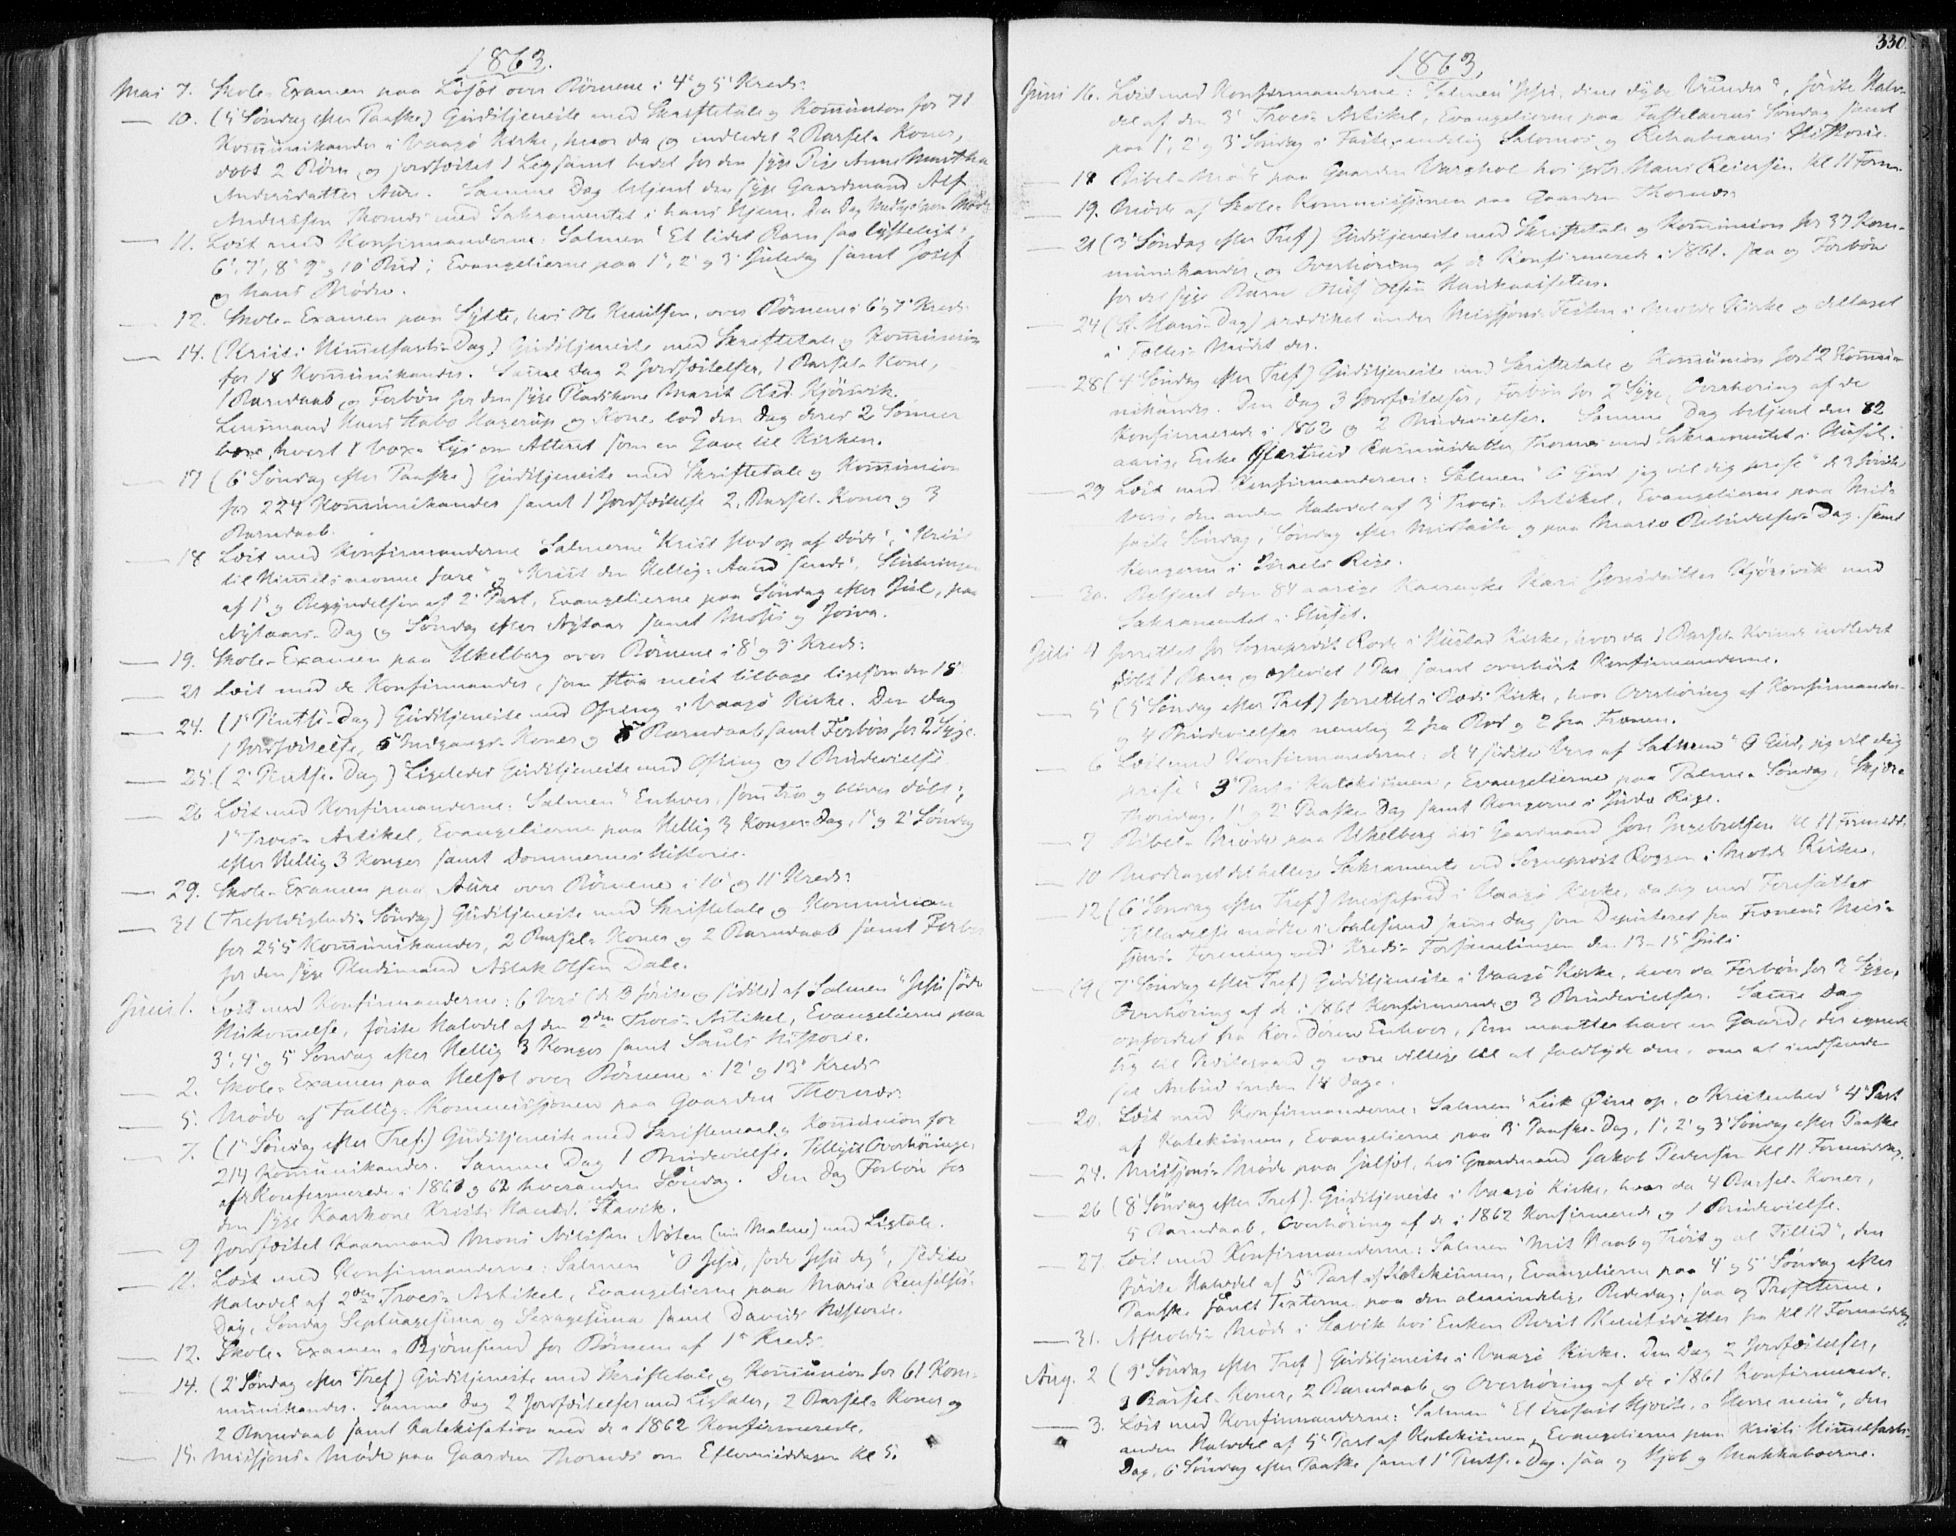 1863.
Mai 7. Skole-Examen paa Løset over Børnene i 4' og 5' Kreds.
— 10. (4' Søndag efter Paaske) Gudstjeneste med Skriftetale og Kommunion for 71
Kommunikanter i Vaagø Kirke, hvor da og indledet 2 Barsel-Koner,
døbt 2 Børn, og jordfæstet 1 Lig samt bedet for den syge Pige Anne Martha
Andersdatter Aure. Samme Dag betjent den syge Gaardmand Alf
Anderssen Thornæs med Sakramentet i hans Hjem.
— 11. Læst med Konfirmanderne: Salmen "Et lidet Barn saa lysteligt",
6', 7', 8' 9' og 10' Bud; Evangelierne paa 1', 2' og 3' Juledag samt Josef
og hans Brødre.
— 12. Skole-Examen paa Sylte, hos Ole Knutsen, over Børnene i 6' og 7' Kreds
— 14. (Kristi Himmelfarts-Dag) Gudstjeneste med Skriftetale og Kommunion
for 18 Kommunikanter. Samme Dag 2 Jordfæstelser, 1 Barsel-Kone,
1 Barnedaab og Forbøn for den syge Pladskone Marit Olsd. Hjørsvik.
Lensmand Hans Stabo Hagerup og Kone lod den Dag deres 2 Sønner
bære hvert 1 Vox-Lys om Alteret som en Gave til Kirken.
— 17 (6' Søndag efter Paaske) Gudstjeneste med Skriftetale og Kommunion
for 224 Kommunikanter samt 1 Jordfæstelse 2 Barsel-Koner og 3
Barnedaab.
— 18 Læst med Konfirmanderne Salmerne "Krist stod op af døde", "Krist
til Himmels monne fare" og "Krist den Hellig-Aand sendte", Slutningen
af 1' og Begyndelsen af 2' Part, Evangelierne paa Søndag efter Jul, paa
Nytaars-Dag og Søndag efter Nytaar samt Moses og Josva.
— 19. Skole-Examen paa Ukelberg over Børnene i 8' og 9' Kreds.
— 21 Læst med de Konfirmander, som staa mest tilbage ligesom den 18'
— 24. (1' Pintse-Dag) Gudstjeneste med Ofring i Vaagø Kirke. Den Dag
1 Jordfæstelse, 5 Indgangs-Koner og 5 Barnedaab samt Forbøn for 2 Syge.
— 25. (2' Pintse-Dag) Ligeledes Gudstjeneste med Ofring og 1 Brudevielse
— 26 Læst med Konfirmanderne: Salmen "Enhver, som tror og bliver døbt",
1' Troes-Artikel, Evangelierne paa Hellig 3 Konger-Dag, 1' og 2' Søndag
efter Hellig 3 Konger samt Dommernes Historie.
— 29. Skole-Examen paa Aure over Børnene i 10' og 11' Kreds.
— 31 (Trefoldigheds-Søndag) Gudstjeneste med Skriftetale og Kommunion
for 255 Kommunikanter, 2 Barsel-Koner og 2 Barnedaab samt Forbøn
for den syge Pladsmand Aslak Olsen Dale.
Juni 1. Læst med Konfirmanderne: 6 Vers (de 3 første og sidste) af Salmen "Jesu søde
Hukomelse, første Halvdel af den 2den Troes-Artikel, Evangelierne paa
3', 4' og 5' Søndag efter Hellig 3 Konger samt Sauls Historie.
— 2. Skole-Examen paa Helset over Børnene i 12' og 13' Kreds
— 5. Møde af Fattig-Kommissjonen paa Gaarden Thornæs
— 7. (1' Søndag efter Tref) Gudstjeneste med Skriftemaal og Kommunion for
214 Kommunikanter. Samme Dag 1 Brudevielse. Tillyst Overhøringer
af de Konfirmerede i 1861 og 62 hveranden Søndag. Den Dag Forbøn for
den syge Kaarkone Kristi Hansd. Slavik.
— 9 Jordfæstet Kaarmand Mons Nilssen Nøten (i Malme) med Ligtale.
— 11. Læst med Konfirmanderne: Salmen "O Jesu, søde Jesu dig", sidste
Halvdel af 2den Troes-Artikel, Evangelierne paa Mariæ Renselses-
Dag, Søndag Septuagesima og Sexagesima samt Davids Historie.
— 12. Skole-Examen i Bjørnsund for Børnene af 1' Kreds
— 14. (2' Søndag efter Tref) Gudstjeneste med Skriftetale og Kommunion for 61 Kom-
munikanter. Samme Dag 2 Jordfæstelser med Ligtaler, 2 Barsel-Koner og
2 Barnedaab samt Katekisation med de i 1862 Konfirmerede.
— 15. Missjons-Møde paa Gaarden Thornæs om Eftermiddagen Kl 5.
330
1863.
Juni 16. Læst med Konfirmanderne: Salmen "Jesu, dine dybe Vunder", første Halv-
del af den 3' Troes-Artikel, Evangelierne paa Fastelavns Søndag samt
paa 1', 2' og 3' Søndag i Faste, endelig Salomos og Rehabeams Historie.
— 18 Bibel-Møde paa Gaarden Varhol hos Hans Reiersen Kl 11 Form.
— 19. Møde af Skole-Kommissjonen paa Gaarden Thornæs
— 21 (3' Søndag efter Tref) Gudstjeneste med Skriftetale og Kommunion for 37 Kom-
munikanter, og Overhøring af de Konfirmerede i 1861. saa og Forbøn
for det syge Barn Oluf Olsen
— 24 (St. Hans-Dag) prædiket under Missjons-Festen i Molde Kirke og deltaget
i Fælles-Mødet der.
— 28 (4' Søndag efter Tref) Gudstjeneste med Skriftetale og Kommunion for 12 Kommu-
nikanter. Den Dag 3 Jordfæstelser, Forbøn for 2 Syge, Overhøring af de
Konfirmerede i 1862 og 2 Brudevielser. Samme Dag betjent den 82
aarige Enke Gjertrud Rasmusdatter Thornæs med Sakramentet i Huset.
— 29 Læst med Konfirmanderne: Salmen "O Gud jeg vil dig prise" de 3 første
Vers, den anden Halvdel af 3' Troes-Artikel, Evangelierne paa Mid-
faste Søndag, Søndag efter Midfaste og paa Mariæ Bebudelses-Dag. samt
Kongerne i Israels Rige.
— 30. Betjent den 84 aarige Kaarenke Kari Jonsdatter Hjørsvik med
Sakramentet i Huset.
Juli 4 forrettet for Sogneprest Rode i Hustad Kirke, hvor da 1 Barsel-Kvinde indledet
døbt 1 Barn og egteviet 1 Par samt overhørt Konfirmanderne.
— 5 (5' Søndag efter Tref) forrettet i Bods Kirke, hvor Overhøring af Konfirmander
og 4 Brudevielser nemlig 2 fra Bod og 2 fra Frænen.
— 6 Læst med Konfirmanderne: de 4 sidste Vers af Salmen "O Gud, jeg vil dig
prise" 3' Part i Katekismen, Evangelierne paa Palme-Søndag, Skjær-
Thorsdag, 1' og 2' Paaske-Dag samt Kongerne i Juda Rige.
— 7 Bibel-Møde paa Ukelberg hos Gaardmand Jon Ingebretsen Kl 11 Formidd.
— 10 Modtaget det hellige Sakramente ved Sogneprest Roggen i Molde Kirke.
— 12 (6' Søndag efter Tref) Messefald i Vaagø Kirke, da jeg med Foresattes
Tilladelse mødte i Aalesund samme Dag som Deputeret fra Frænens Mis-
sjons-Forening ved Kreds-Forsamlingen den 13-15 Juli
— 19 (7' Søndag efter Tref) Gudstjeneste i Vaagø Kirke, hvor da Forbøn for 2 Syge,
Overhøring af de i 1861 Konfirmerede og 3 Brudevielser. Samme Dag
opfordret fra Kor-Døren Enhver, som maatte have en Gaard, der egnede
sig til Distriktsgaard og være villige til at sælge den, om at indsende
sit Anbud inden 14 Dage.
— 20. Læst med Konfirmanderne: Salmen "Luk Øine op, o Kristenhed" 4' Part
af Katekismen, Evangelierne paa 3' Paaske-Dag, 1', 2' og 3' Søndag efter Paaske
— 24. Missjons-Møde paa Julset, hos Gaardmand Jakob Pedersen Kl 11 Formiddag.
— 26 (8' Søndag efter Tref). Gudstjeneste i Vaagø Kirke, hvor da 4 Barsel-Koner,
5 Barnedaab, Overhøring af de i 1862 Konfirmerede og 1 Brudevielse.
— 27. Læst med Konfirmanderne: Salmen "Mit Haab og Trøst og al Tillid", den
første Halvdel af 5' Part af Katekismen, Evangelierne paa 4' og 5' Søndag efter
Paaske samt Texterne paa den almindelige Bededag; saa og Profeterne.
— 31. Afholds-Møde i Slavik hos Enken Berit Knutsdatter fra Kl 11 Formiddag
Aug. 2 (9' Søndag efter Tref) Gudstjeneste i Vaagø Kirke. Den Dag 2 Jordfæstelser,
3 Barsel-Koner, 2 Barnedaab og Overhøring af de i 1861 Konfirmerede.
— 3. Læst med Konfirmanderne: Salmen "Et trofast Hjerte, o Herre min", den
anden Halvdel af 5' Part af Katekismen, Evangelierne paa Kristi Himmelfarts-
Dag, 6' Søndag efter Paaske samt 1' Pintse-Dag. saa og Hjob og Makkabæerne.